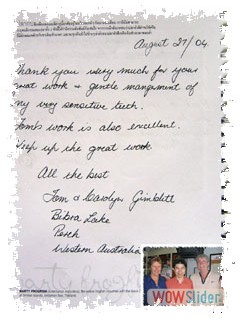 August 27/04.
Thank you very much for your
great work & gentle management of
my very sensitive teeth.
Tom's work is also excellent.
Keep up the great work
All the best
Tom & Carolyn Gimblett
Bibra Lake
Perth
Western Australia
WOWSlider